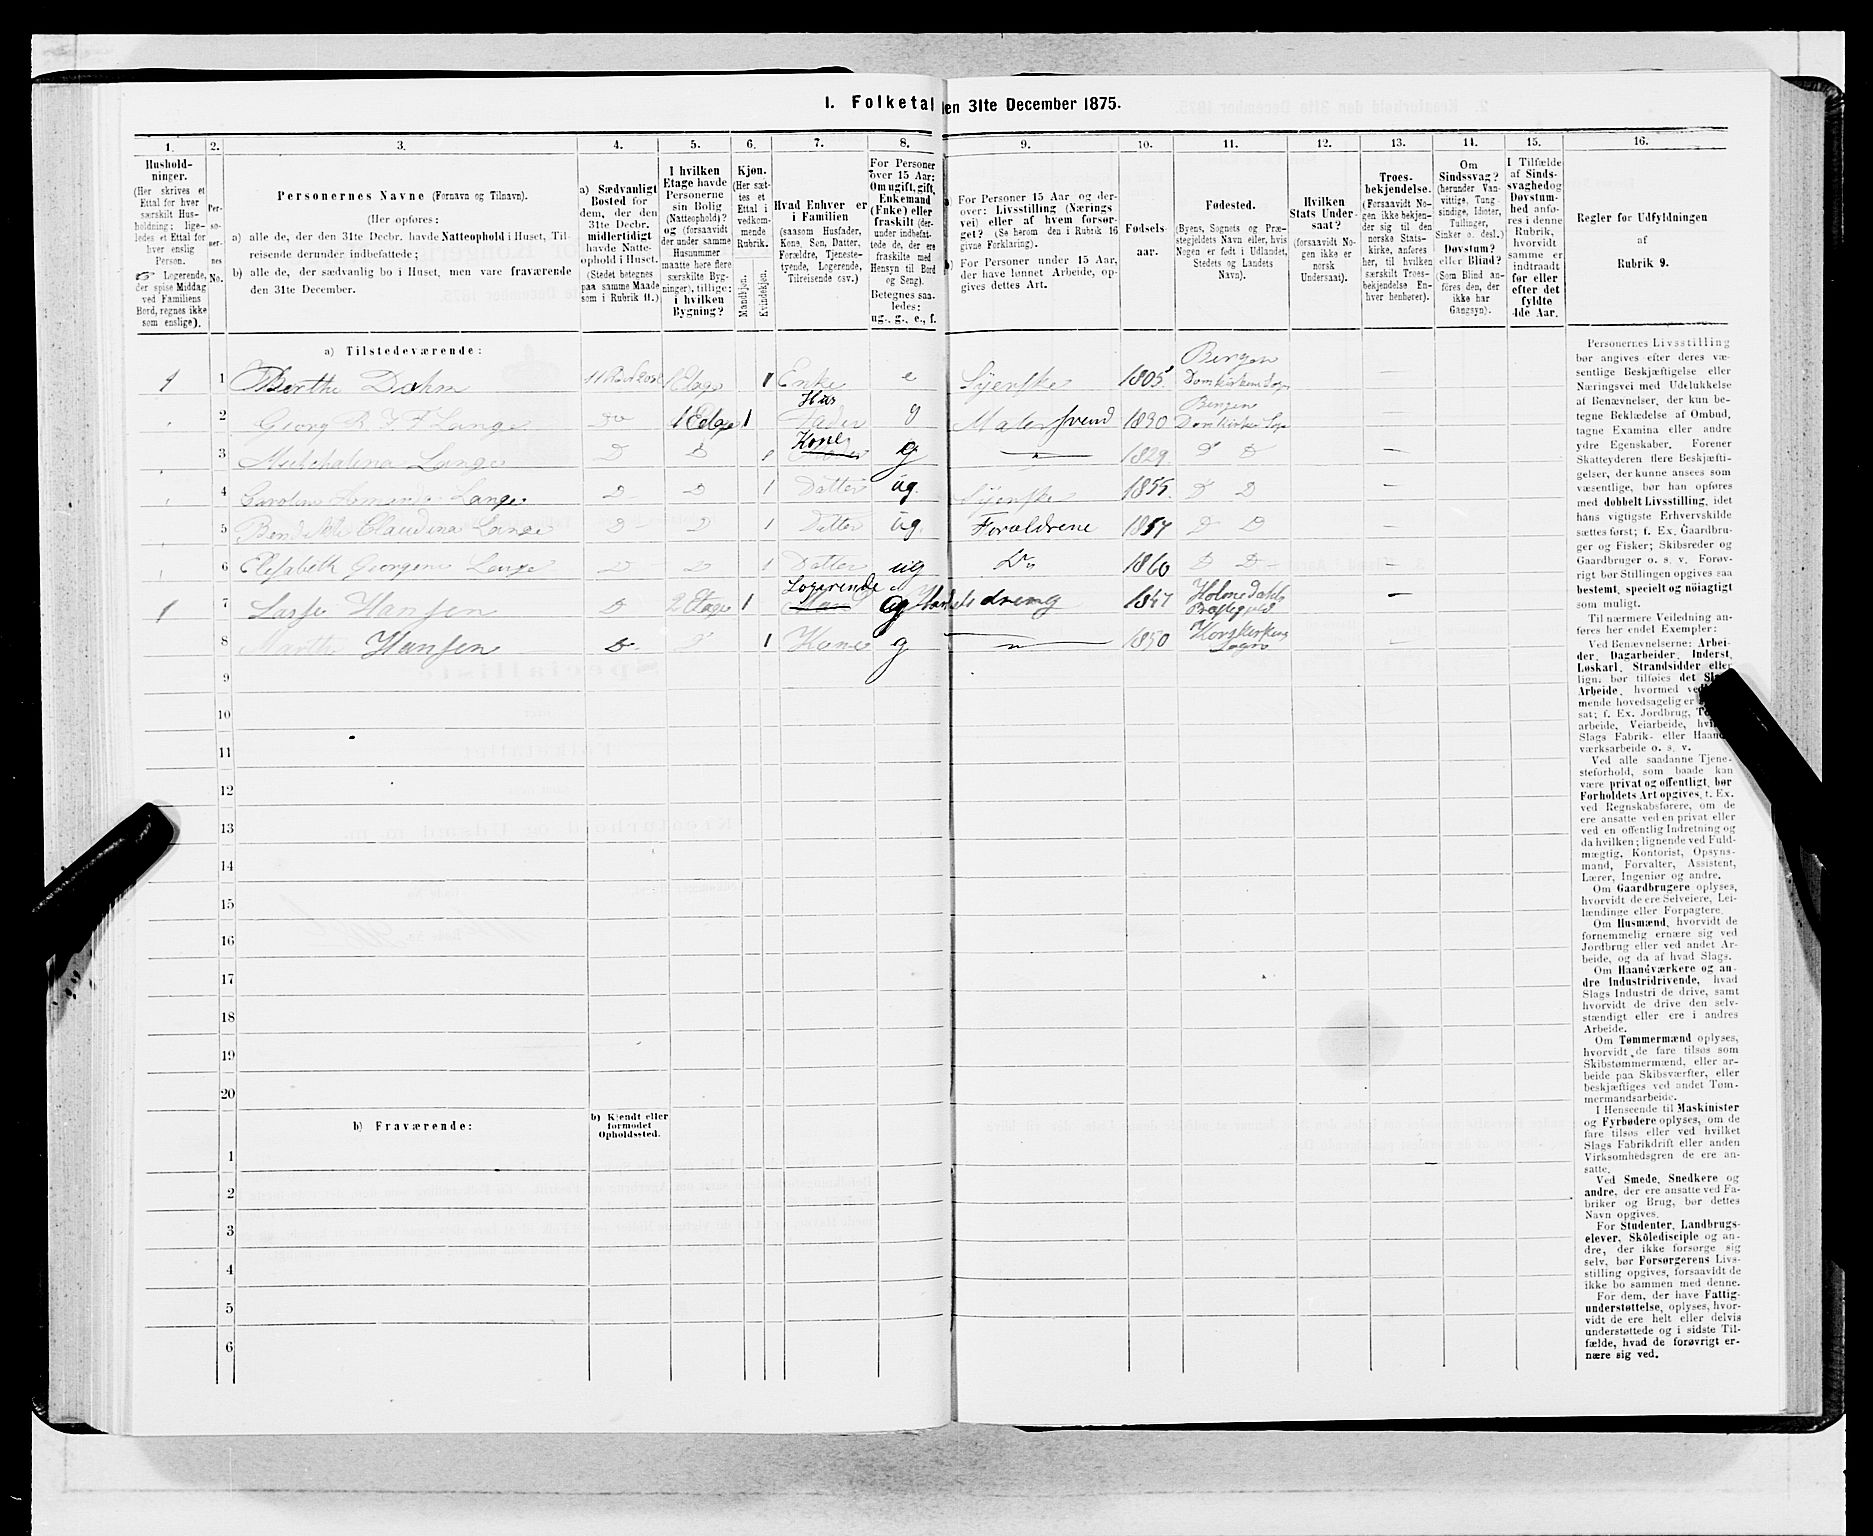 1. Folketal den 31te December 1875.
1. 2. 3. 4. 5. 6. 7. 8. 9. 10. 11. 12. 13. 14. 15. 16.
Hushold-
ninger.
(Her skrives et
Ettal for hver
særskilt Hus-
holdning; lige-
ledes et Ettal for
☞ Logerende,
der spise Middag
ved Familiens
Bord, regnes ikke
som enslige).
Per-
so-
ner-
nes
No.
Personernes Navne (Fornavn og Tilnavn).
(Her opføres:
a) alle de, der den 31te Decbr. havde Natteophold i Huset, Til-
reisende derunder indbefattede;
b) alle de, der sædvanlig bo i Huset, men vare fraværende
den 31te December.
a) Sædvanligt
Bosted for
dem, der den
31te Decbr.
midlertidigt
havde Natte-
ophold i Huset.
(Stedet betegnes
paa samme Maade
som i Rubrik 11.)
I hvilken
Etage havde
Personerne
sin Bolig
(Natteophold)?
og (forsaavidt
der under samme
Husnummer
maatte høre flere
særskilte Byg-
ninger), tillige:
i hvilken
Bygning?
Kjøn.
(Her sæt-
tes et
Ettal i
vedkom-
mende
Rubrik.
Mandkjøn.
Kvindekjøn.
Hvad Enhver er
i Familien
(saasom Husfader,
Kone, Søn, Datter,
Forældre, Tjeneste-
tyende, Logerende,
Tilreisende osv.)
For Personer
over 15 Aar:
Om ugift, gift,
Enkemand
(Enke) eller
fraskilt (der-
under indbefat-
tede de, der ere
fraskilte med
Hensyn til Bord
og Seng).
Betegnes saa-
ledes:
ug., g., e., f.
For Personer 15 Aar og der-
over: Livsstilling (Nærings
vei) eller af hvem forsør-
get? (Se herom den i Rubrik 16
givne Forklaring).
For Personer under 15 Aar,
der have lønnet Arbeide, op-
gives dettes Art.
Fødsels-
aar.
Fødested.
(Byens, Sognets og Præ-
stegjeldets Navn eller, hvis
Nogen er født i Udlandet,
Stedets og Landets
Navn).
Hvilken
Stats Under-
saat?
(forsaavidt No-
gen ikke er
norsk
Undersaat).
Troes-
bekjendelse.
(Forsaavidt No-
gen ikke bekjen-
der sig til den
norske Stats-
kirke, anføres
her, til hvilken
særskilt Troes-
bekjendelse En-
hver henhører).
Om
Sindssvag?
(herunder Van-
vittige, Tung
sindige, Idioter,
Tullinger,
Sinker o. desl.)
Døvstum?
eller Blind?
(Som Blind an-
føres den, der
ikke har
Gangsyn).
I Tilfælde
af Sinds-
svaghed og
Døvstum-
hed anfø-
res i denne
Rubrik,
hvorvidt
samme er
indtraadt
før eller
efter det
fyldte
4de Aar.
Regler for Udfyldningen
af
Rubrik 9.
a) Tilstedeværende:
1 1 Berthe Dahm 1 Etage 1 Enke e Syerske 1805 Bergen Domkirkens Sogn
2 Georg R. F. F. Lange 1 Etage 1 Husfader g Malersvend 1830 Bergen Domkirke Sogn
3 Lange D D Kone g 1829 D D
4 Lange D D 1 Datter ug. Syerske 1855 D D
5 Claudina Lange D D 1 Datter ug. Forældrene 1857 D D
6 Elisabeth Lange D D 1 Datter ug Do 1860 D D
1 7 Lasse Hansen D 2 Etage 1 Logerende g 1847 Holmedahls Præstegjeld
8 Marthe Hansen D D 1 Kone g 1850 Korskirkens Sogn
9
10
11
12
13
14
15
16
17
18
19
20
b) Fraværende:
b) Kjendt eller
formodet
Opholdssted.
1
2
3
4
5
6
Personernes Livsstilling
bør angives efter deres væ-
sentlige Beskjæftigelse eller
Næringsvei med Udelukkelse
af Benævnelser, der kun be-
tegne Beklædelse af Ombud,
tagne Examina eller andre
ydre Egenskaber. Forener
Skatteyderen flere Beskjæfti-
gelser, der kunne ansees som
væsentlige, bør han opføres
med dobbelt Livsstilling, idet
hans vigtigste Erhvervskilde
sættes først; f. Ex. Gaardbru-
ger og Fisker; Skibsreder og
Gaardbruger o. s. v. Forøv-
rigt bør Stillingen opgives saa
bestemt, specielt og nøiagtigt
som muligt.
Til nærmere Veiledning an-
føres her endel Exempler:
Ved Benævnelserne: Arbei-
der, Dagarbeider, Inderst,
Løskarl, Strandsidder eller
lign. bør tilføies det Slags
Arbeide, hvormed
mende hovedsagelig er
sat; f. Ex. Jordbrug,
arbeide, Veiarbeide,
Slags Fabrik- eller Haand-
værksarbeide o. s. v.
Ved alle saadanne Tjene-
steforhold, som baade kan
være privat og offentligt, bør
Forholdets Art opgives, t. Ex.
ved Regnskabsførere, om de
ere ansatte ved en privat eller
ved en offentlig Indretning og
da hvilken; lignende ved Fuld-
mægtig, Kontorist, Opsyns-
mand, Forvalter, Assistent,
Lærer, Ingeniør og andre.
Om Gaardbrugere oplyses,
hvorvidt de ere Selveiere, Lei-
lændinge eller Forpagtere.
Om Husmænd, hvorvidt de
fornemmelig ernære sig ved
Jordbrug eller ved andet Ar-
beide, og da af hvad Slags.
Om Haandværkere og an-
dre Industridrivende, hvad
Slags Industri de drive, samt
hvorvidt de drive den selv-
stændigt eller ere i andres
Arbeide.
Om Tømmermænd oplyses,
hvorvidt de fare tilsøs som
Skibstømmermænd, eller ar-
beide paa Skibsværfter, eller
beskjæftiges ved andet Tøm-
mermandsarbeide.
I Henseende til Maskinister
og Fyrbødere oplyses, om de
fare tilsøs eller ved hvilket
Slags Fabrikdrift eller anden
Virksomhedsgren de ere an-
satte.
Ved Smede, Snedkere og
andre, der ere ansatte ved Fa-
briker og Brug, bør dettes
Navn opgives.
For Studenter, Landbrugs-
elever, Skoledisciple og an-
dre, der ikke forsørge sig
selv, bør Forsørgerens Livs-
stilling opgives, forsaavidt de
ikke bo sammen med denne.
For dem, der have Fattig-
understøttelse, oplyses, hvor-
vidt de ere helt eller delvis
understøttede og i sidste Til-
fælde, hvad de forøvrigt er-
nære sig ved.